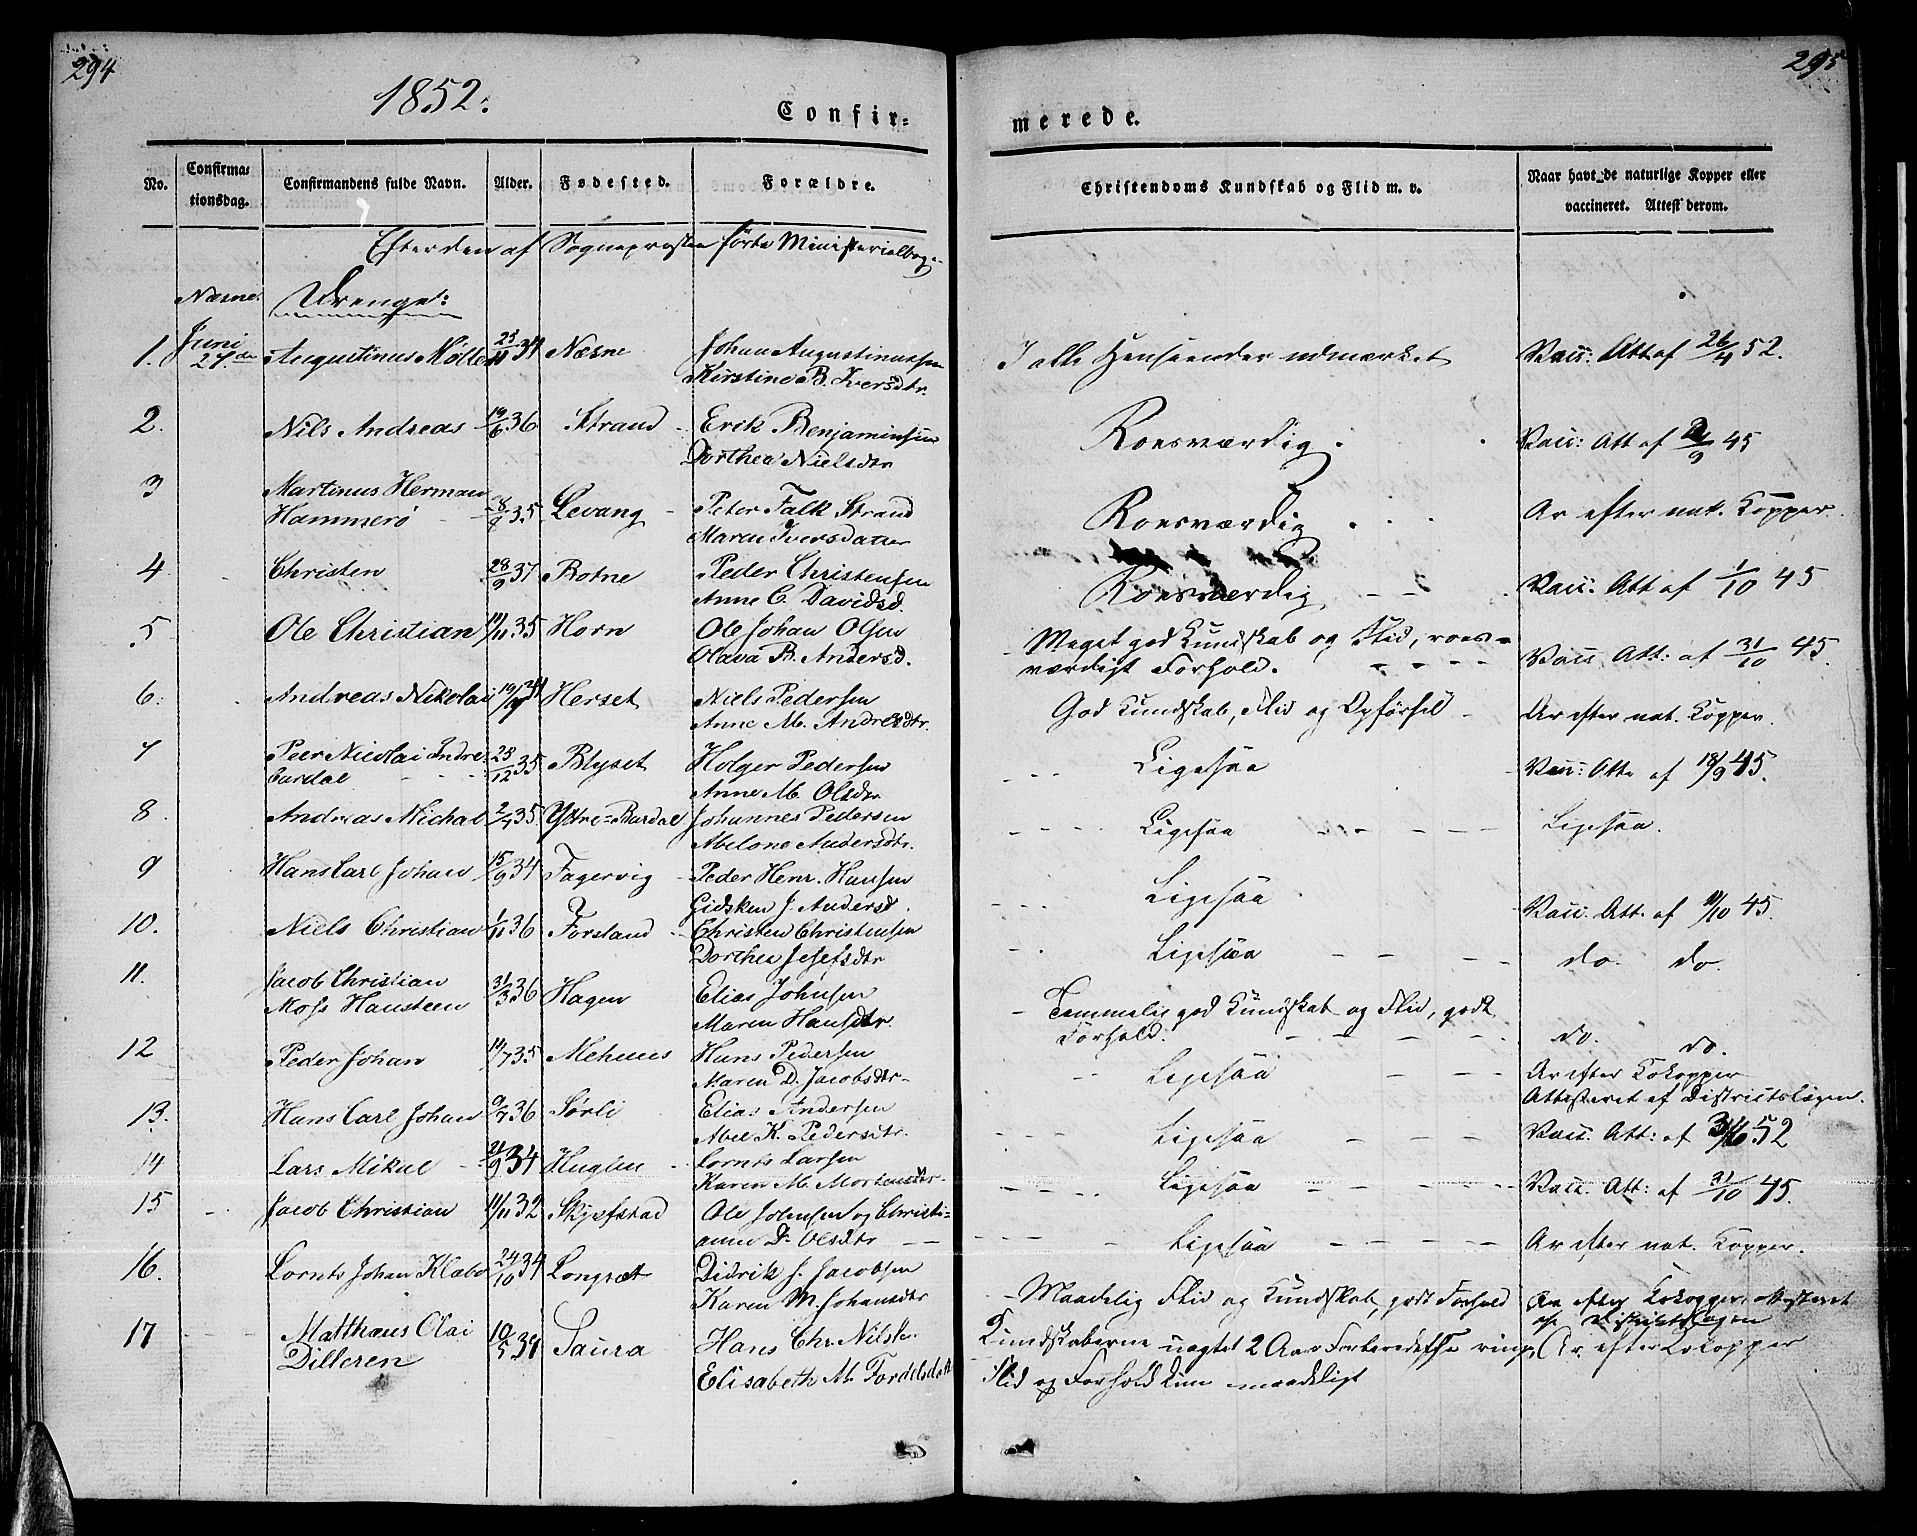 294
1852.
Confir-
No.
Confirma-
tionsdag.
Confirmandens fulde Navn.
Alder.
Fødested.
Forældre.
Efter den af Sognepresten førte Ministerialbog.
Næsne.
Drenge:
1. Juni 27.de Augustinus Møller 34 Næsne Johan Augustinussen
Kirstine B. Iversdtr.
2. Nils Andreas 19/6 36 Strand Erik Benjaminsen
Dorthea Nielsdtr
3 Martinus Herman
Hammerø 35 Levang Peter Falk Strand
Maren Iversdatter
4 Christen 28/9 37 Botne Peder Christensen
Anne C. Davidsd.
5 Ole Christian 35 Horn Ole Johan Olsen
Olava B. Andersd.
6. Andreas Nikolai 34 Herset Niels Pedersen
Anne M. Andresdtr.
7 Peer Nicolai Indre
bardal 23/12 35 Blyset Holger Pedersen
Anne M. Olsdtr
8. Andreas Michal 2/4 35 Yttre-Bardal Johannes Pedersen
Abelone Andersdtr.
9 Hans Carl Johan 15/9 34 Fagervig Peder Henr. Hansen
Gidsken J. Andersd.
10. Niels Christian 1/11 36 Forsland Christen Christensen
Dorthea Josefsdtr
11. Jacob Christian
Moss Hansteen 31/3 36 Hagen Elias Johnsen
Maren Hansdtr.
12 Peder Johan 35 Mehuus Hans Pedersen
Maren D. Jacobsdtr
13. Hans Carl Johan 9/7 36 Sørli Elias Andersen
Abel K. Pedersdtr.
14 Lars Mikal 34 Huglen Lornts Larsen
Karen M. Mortensdtr
15 Jacob Christian 32 Skjefstad Ole Johnsen og Christi-
anna D. Olsdtr
16. Lornts Johan Klæbo 24/10 34 Longset Didrik J. Jacobsen
Karen M. Johansdtr
17 Matthæus Olai
Dilleren 10/5 34 Saura Hans Chr. Nils
Elisabeth M.
295
merede.
Christendoms Kundskab og Flid m. v.
Naar havt de naturlige Kopper eller
vaccineret. Attest derom.
I alle Henseender udmærket Vacc: Att af 26/4 52.
Roesværdig Vacc: Att af 45
Roesværdig Ar efter nat. Kopper.
Roesværdig Vacc. Att af 1/10 45
Meget god Kundskab og Flid, roes-
værdigt Forhold. Vacc. Att: af 31/10 45.
God Kundskab, Flid og Opførsel Ar efter nat. Kopper.
Ligesaa Vacc: Att. af 18/9 45.
Ligesaa Ligesaa.
Ligesaa Vacc. Att. af 45.
Ligesaa do. do.
Temmelig god Kundskab og Flid, godt
Forhold. do. do.
Ligesaa Ar efter Kokopper
Attesteret af Districtslægen.
Ligesaa Vacc. Att: af 52
Ligesaa Vacc. Att: af 31/10 45.
Ligesaa Ar efter nat. Kopper.
Maadelig Flid og Kundskab, godt Forhold Ar efter Kokopper, attesteret
af Districtslægen
Kundskaberne uagtet 2 Aars Forberedelse ringe, Ar efter Kokopper
Flid og Forhold kun maadeligt